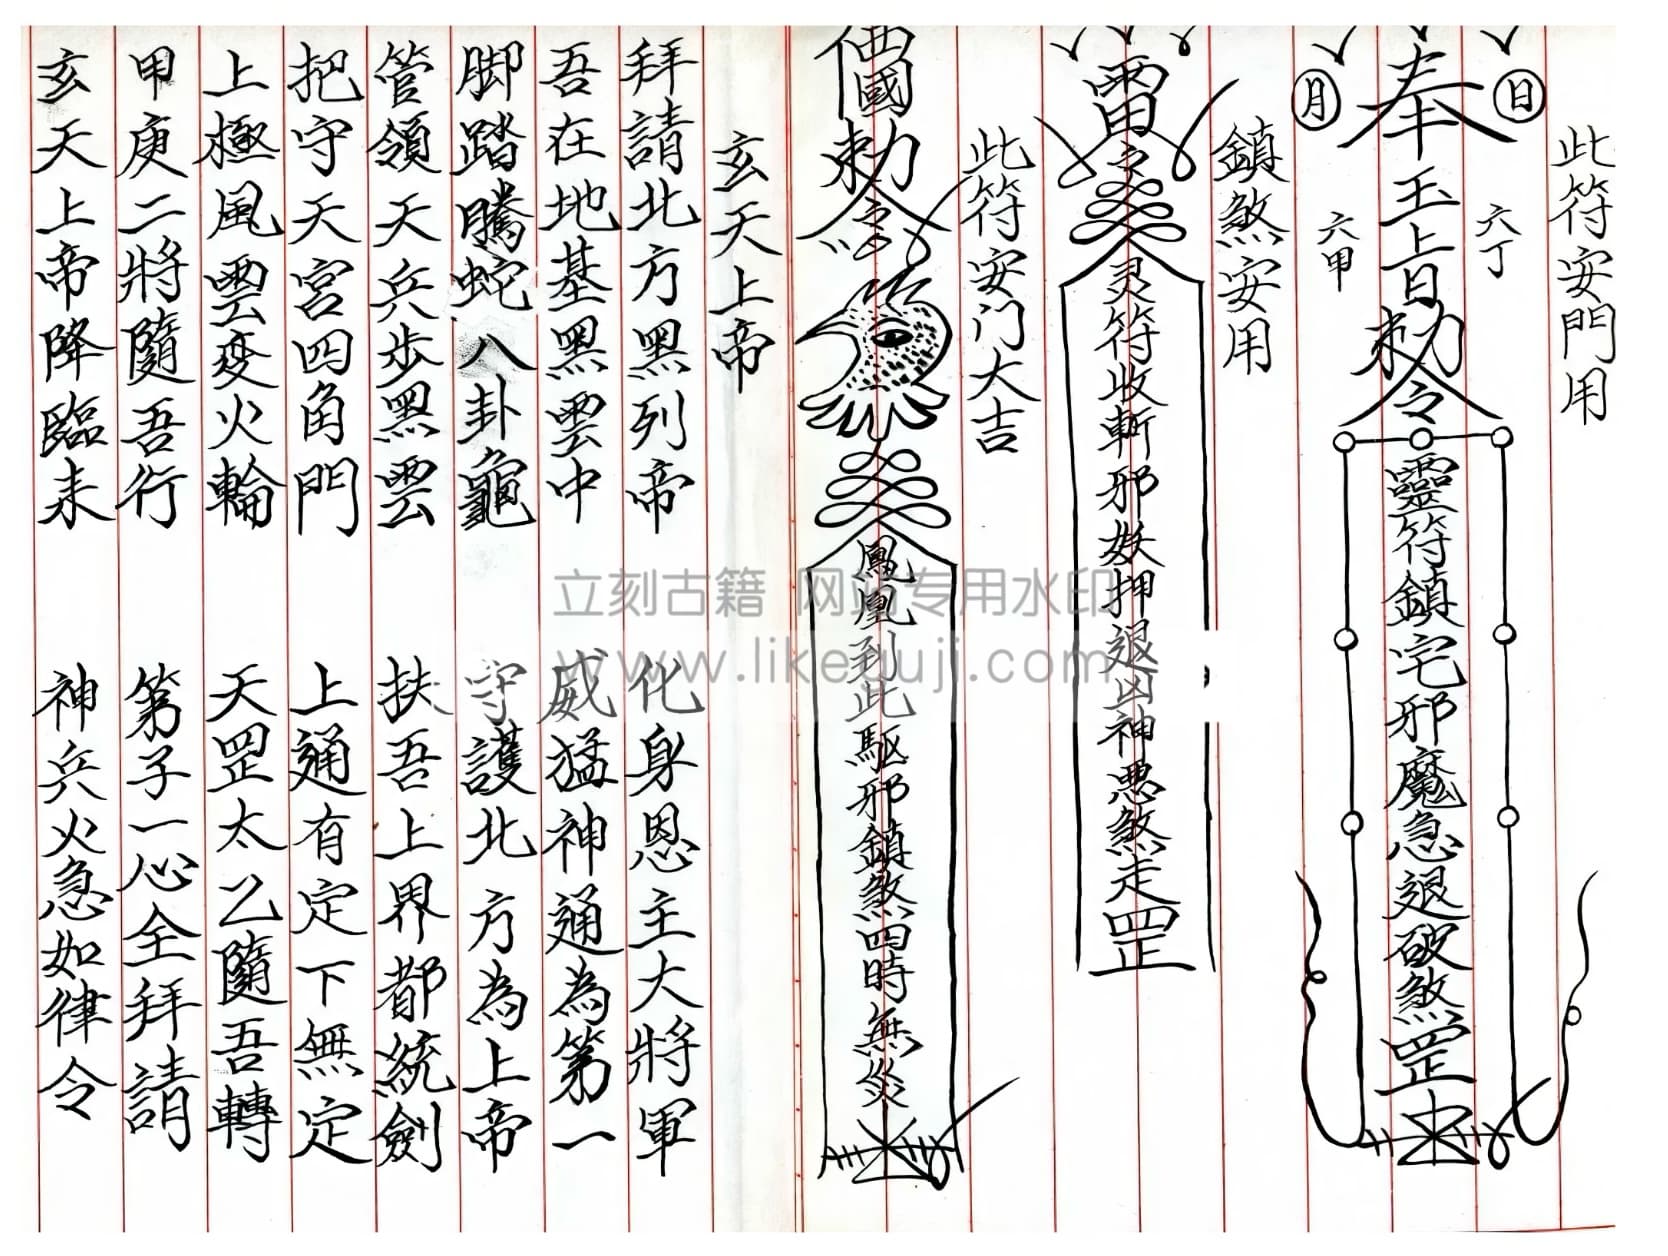 此符安門用
日
六丁
奉玉上日勅令靈符鎮宅邪魔急退破煞罡
月
六甲
鎮煞安用
雷令灵符收斬邪妖押退凶神悪煞走罡
此符安门大吉
勅令鳳凰到此驱邪鎮煞四時無災
玄天上帝
拜請北方黑列帝 化身恩主大將軍
吾在地基黑雲中 威猛神通為第一
脚踏騰蛇八卦龜 守護北方為上帝
管領天兵步黑雲 扶吾上界都統劍
把守天宮四角門 上通有定下無定
上極風雲变火輪 天罡太乙隨吾轉
甲庚二將隨吾行 第子一心全拜請
玄天上帝降臨未 神兵火急如律令
立刻古籍 网站专用水印
www.likeguji.com